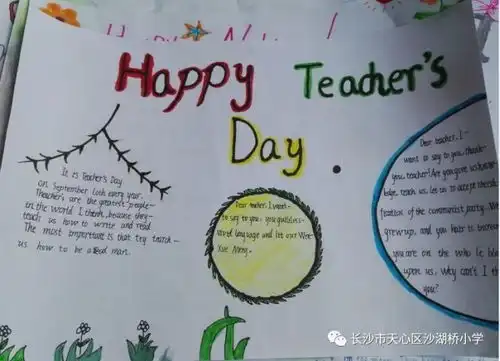 Happy Teacher's
Day.
It is Teacher's Day
on September 10th every year.
Theachers are the greatest people
in the world I think, because they
teach us how to write and read
The most important is that try teach
us how to be a good man.
Dear teacher, I want
to say to you, you
word language and let our Wee
Dear teacher, I
want to say to you, thank
you, teacher! Are you give us
ledge, teach us, let us to accept the
of the communist party. We
grew up, and you hair is
you are on the who le
upon us. Why can't I
you?
长沙市天心区沙湖桥小学